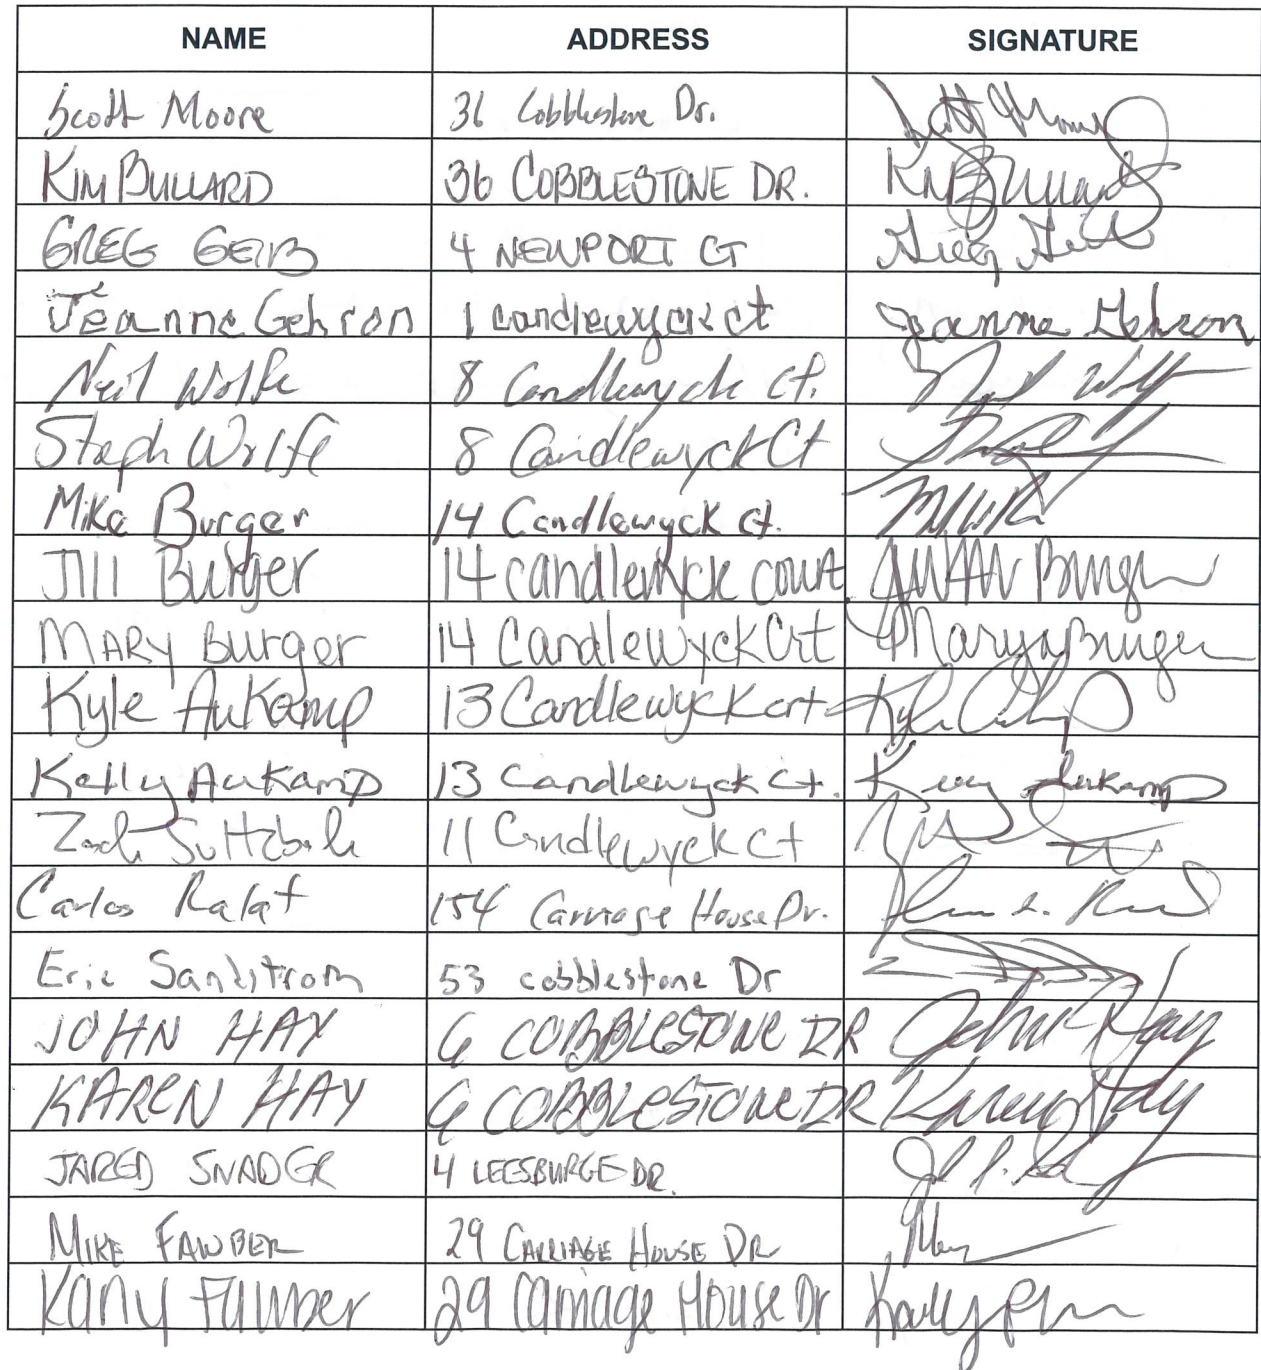 NAME ADDRESS SIGNATURE
Scott Moore 36 Cobblestone Dr. Scott Moore
KIM BULLARD 36 COBBLESTONE DR. Kim Bullard
GREG GEIB 4 NEWPORT CT Greg Geib
Jeanne Gehron 1 candlewyck ct Jeanne Gehron
Neil Wolfe 8 Candlewyck Ct.
Steph Wolfe 8 Candlewyck Ct
Mike Burger 14 Candlewyck ct.
Jill Burger 14 candlewyck court Burger
MARY Burger 14 Candlewyck Crt Mary Burger
Kyle Aukamp 13 Candlewyck crt Kyle
Kelly Aukamp 13 Candlewyck Ct. Kelly Aukamp
Zach 11 Candlewyck Ct
Carlos Ralat 154 Carriage House Dr.
Eric Sandstrom 53 cobblestone Dr
JOHN HAY 6 COBBLESTONE DR John Hay
KAREN HAY 6 COBBLESTONE DR Karen Hay
JARED SNADER 4 LEESBURGE DR.
MIKE FAWBER 29 CARRIAGE HOUSE DR
Fawber 29 Carriage House Dr